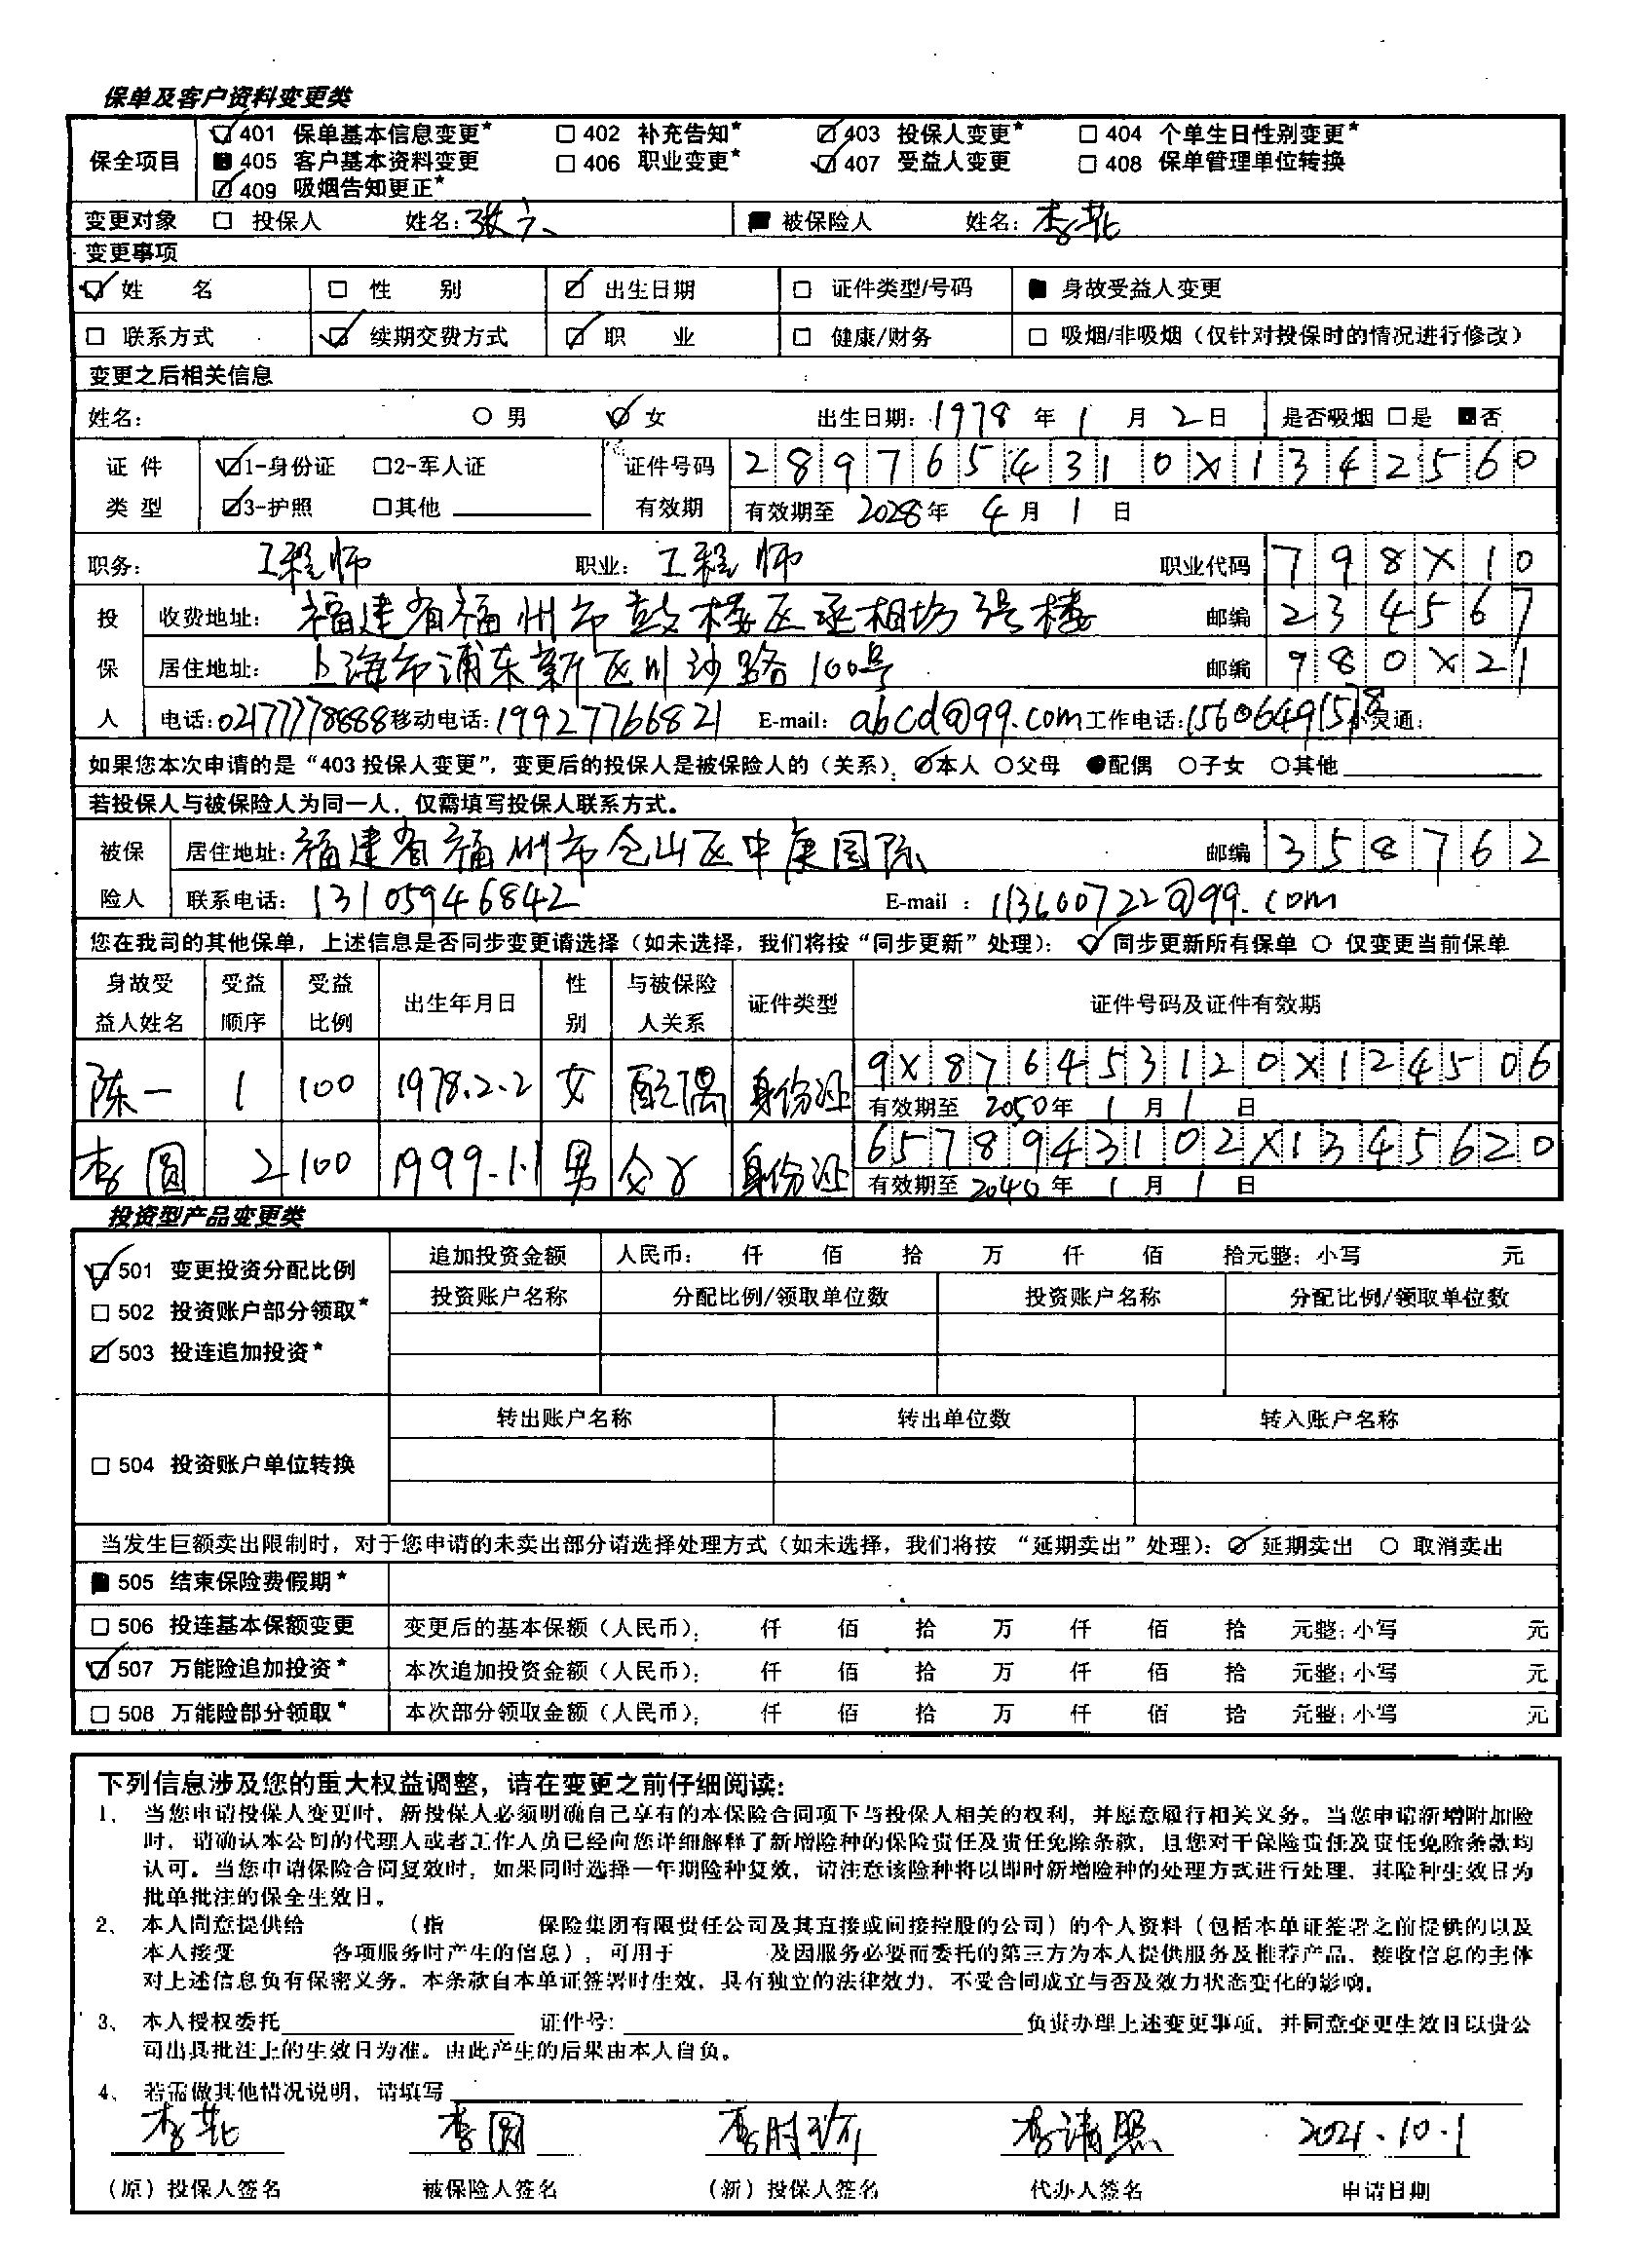 保单及客户资料变更类
保全项目
401 保单基本信息变更* 402 补充告知* 403 投保人变更* 404 个单生日性别变更*
405 客户基本资料变更 406 职业变更* 407 受益人变更 408 保单管理单位转换
409 吸烟告知更正*
变更对象 投保人 姓名: 被保险人 姓名:李花
变更事项
姓 名 性 别 出生日期 证件类型/号码 身故受益人变更
联系方式 续期交费方式 职 业 健康/财务 吸烟/非吸烟（仅针对投保时的情况进行修改）
变更之后相关信息
姓名: 男 女 出生日期: 1978 年 1 月 2 日 是否吸烟 是 否
证件类型 1-身份证 2-军人证 证件号码 2897654310X1342560
3-护照 其他 有效期 有效期至 2028年 4月 1 日
职务: 工程师 职业: 工程师 职业代码 798X10
投保人 收费地址: 福建省福州市鼓楼区丞相坊3号楼 邮编 234567
居住地址: 上海市浦东新区川沙路100号 邮编 980X21
电话:02177778688 移动电话:19927766821 E-mail: abcd@qq.com 工作电话:15606491578 小灵通:
如果您本次申请的是“403 投保人变更”，变更后的投保人是被保险人的（关系）: 本人 父母 配偶 子女 其他
若投保人与被保险人为同一人，仅需填写投保人联系方式。
被保险人 居住地址: 福建省福州市仓山区中庚国际 邮编 358762
联系电话: 13105946842 E-mail : 113600722@qq.com
您在我司的其他保单，上述信息是否同步变更请选择（如未选择，我们将按“同步更新”处理）: 同步更新所有保单 仅变更当前保单
身故受益人姓名 受益顺序 受益比例 出生年月日 性别 与被保险人关系 证件类型 证件号码及证件有效期
陈一 1 100 1978.2.2 女 配偶 身份证 9X876453120X124506
有效期至 2050年 1 月 1 日
李圆 2 100 1999.1.1 男 身份证 6578943102X1345620
有效期至 2040年 1 月 1 日
投资型产品变更类
501 变更投资分配比例 追加投资金额 人民币: 仟 佰 拾 万 仟 佰 拾元整: 小写 元
502 投资账户部分领取* 投资账户名称 分配比例/领取单位数 投资账户名称 分配比例/领取单位数
503 投连追加投资*
504 投资账户单位转换 转出账户名称 转出单位数 转入账户名称
当发生巨额卖出限制时，对于您申请的未卖出部分请选择处理方式（如未选择，我们将按 “延期卖出”处理）: 延期卖出 取消卖出
505 结束保险费假期*
506 投连基本保额变更 变更后的基本保额（人民币）: 仟 佰 拾 万 仟 佰 拾 元整: 小写 元
507 万能险追加投资* 本次追加投资金额（人民币）: 仟 佰 拾 万 仟 佰 拾 元整: 小写 元
508 万能险部分领取* 本次部分领取金额（人民币）: 仟 佰 拾 万 仟 佰 拾 元整: 小写 元
下列信息涉及您的重大权益调整，请在变更之前仔细阅读:
1、 当您申请投保人变更时，新投保人必须明确自己享有的本保险合同项下与投保人相关的权利，并愿意履行相关义务。当您申请新增附加险
时，请确认本公司的代理人或者工作人员已经向您详细解释了新增险种的保险责任及责任免除条款，且您对于保险责任及责任免除条款均
认可。当您申请保险合同复效时，如果同时选择一年期险种复效，请注意该险种将以即时新增险种的处理方式进行处理，其险种生效日为
批单批注的保全生效日。
2、 本人同意提供给 （指 保险集团有限责任公司及其直接或间接控股的公司）的个人资料（包括本单证签署之前提供的以及
本人接受 各项服务时产生的信息），可用于 及因服务必要而委托的第三方为本人提供服务及推荐产品，接收信息的主体
对上述信息负有保密义务。本条款自本单证签署时生效，具有独立的法律效力，不受合同成立与否及效力状态变化的影响。
3、 本人授权委托 证件号: 负责办理上述变更事项，并同意变更生效日以贵公
司出具批注上的生效日为准。由此产生的后果由本人自负。
4、 若需做其他情况说明，请填写
李花 李圆 李时珍 李清照 2021.10.1
（原）投保人签名 被保险人签名 （新）投保人签名 代办人签名 申请日期